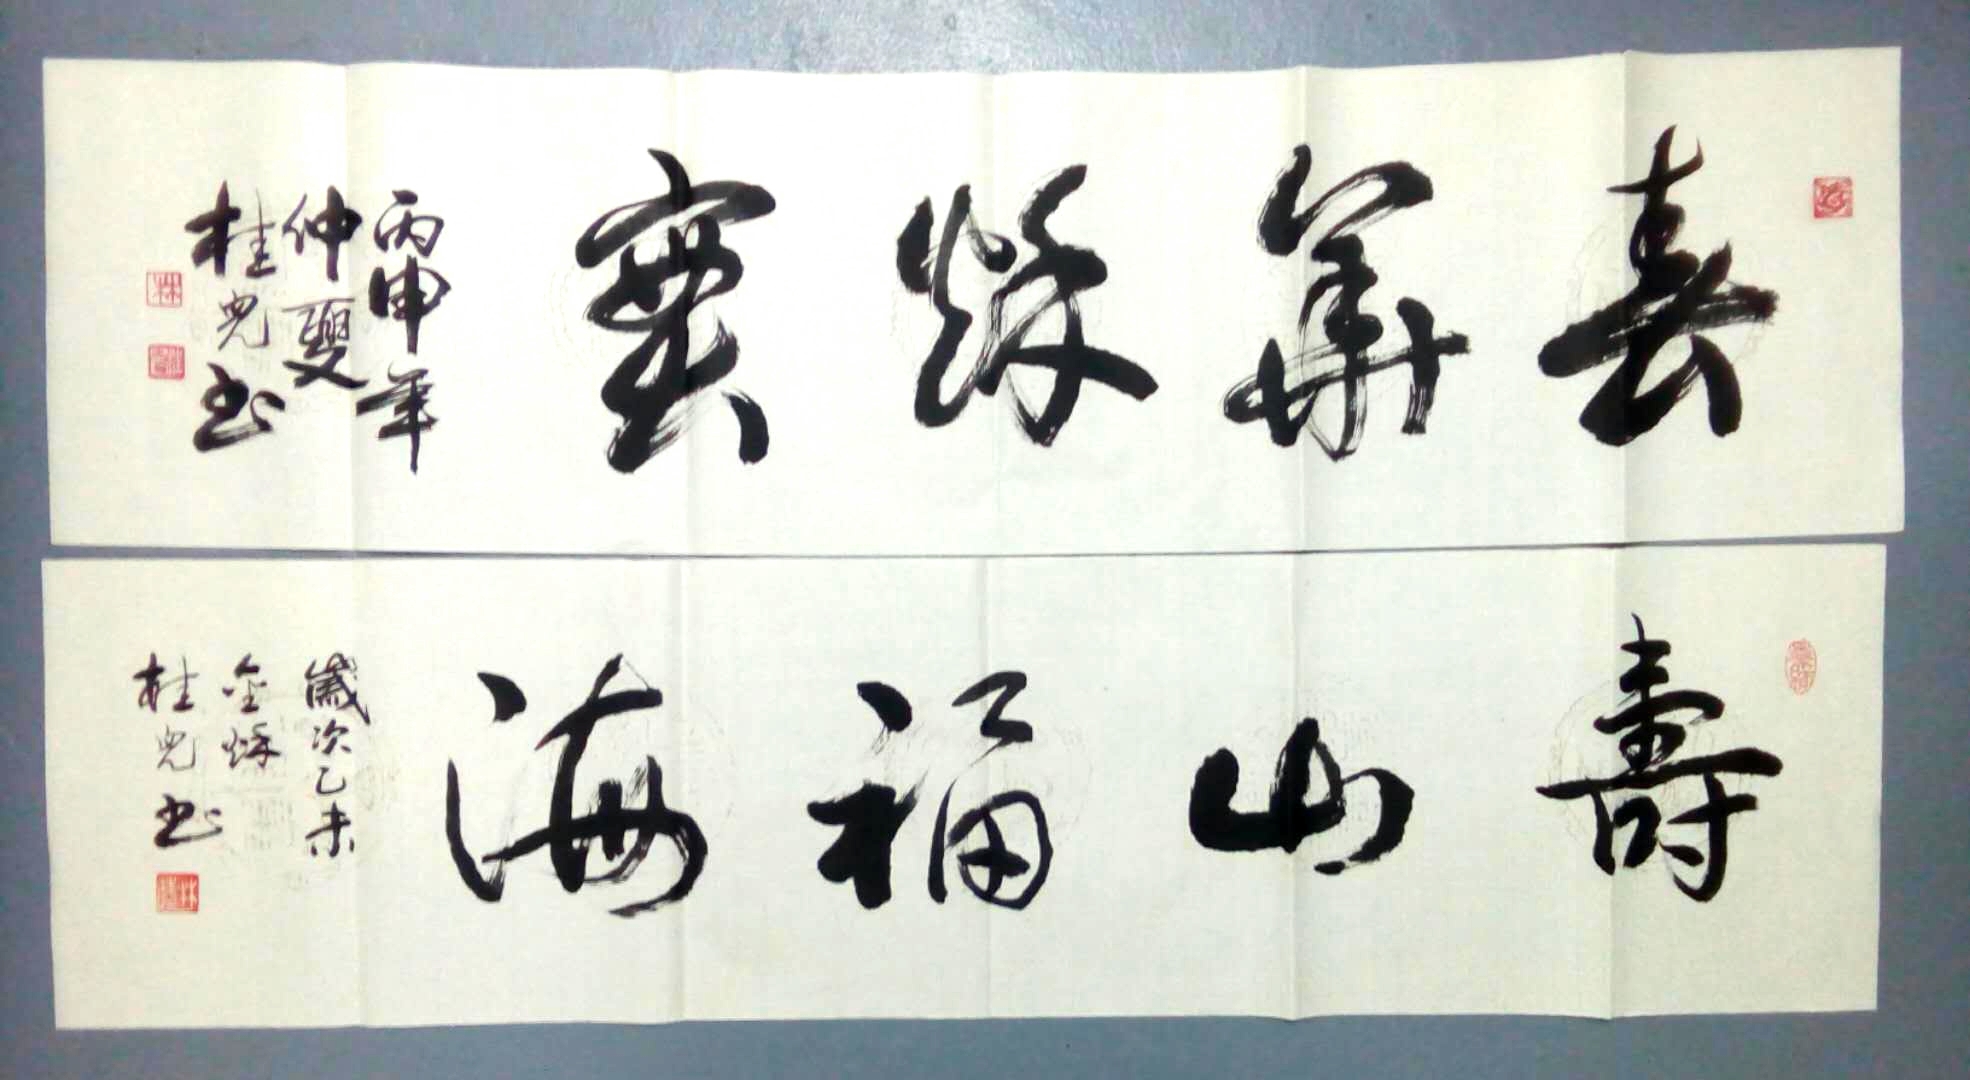 春華秋實
丙申年
仲夏
桂光书
壽山福海
歲次乙未
金秋
桂光书